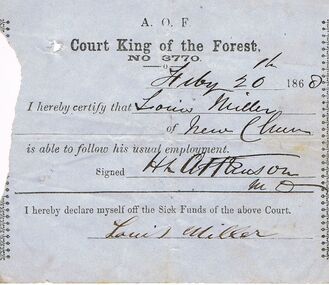 A. O. F.
Court King of the Forest,
NO 3770.
Feby 20th 1868
I hereby certify that Louis Miller
of New Chum
is able to follow his usual employment.
Signed Atkinson
MD
I hereby declare myself off the Sick Funds of the above Court.
Louis Miller